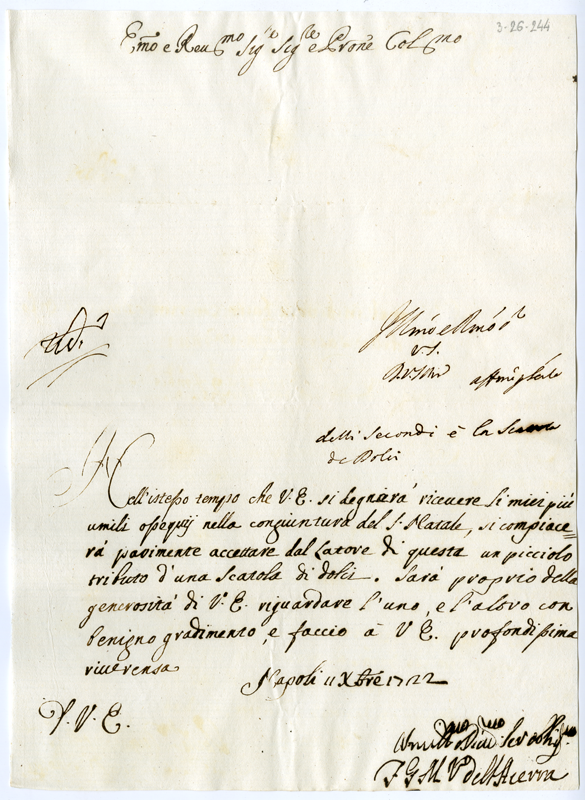 3-26-244
Emo e Reumo Sigre Sigre e Prone Colmo
Illmo e Rmo Sr
V.S.
affmi per le
delli secondi è la Scatola
de Dolci
Nell'istesso tempo che V.E. si degnarà riceuere li miei più
umili ossequij nella congiuntura del S. Natale, si compiace=
rà parimente accettare dal Latore di questa un picciolo
tributo d'una Scatola di dolci. Sarà proprio della
generosità di V.E. riguardare l'uno, e l'altro con
benigno gradimento, e faccio à V.E. profondissima
riuerensa
Napoli 11 Xbre 1722
D.V.E.
Umilmo Diumo Seruo Obligmo
F G M Vo dell'Acerra